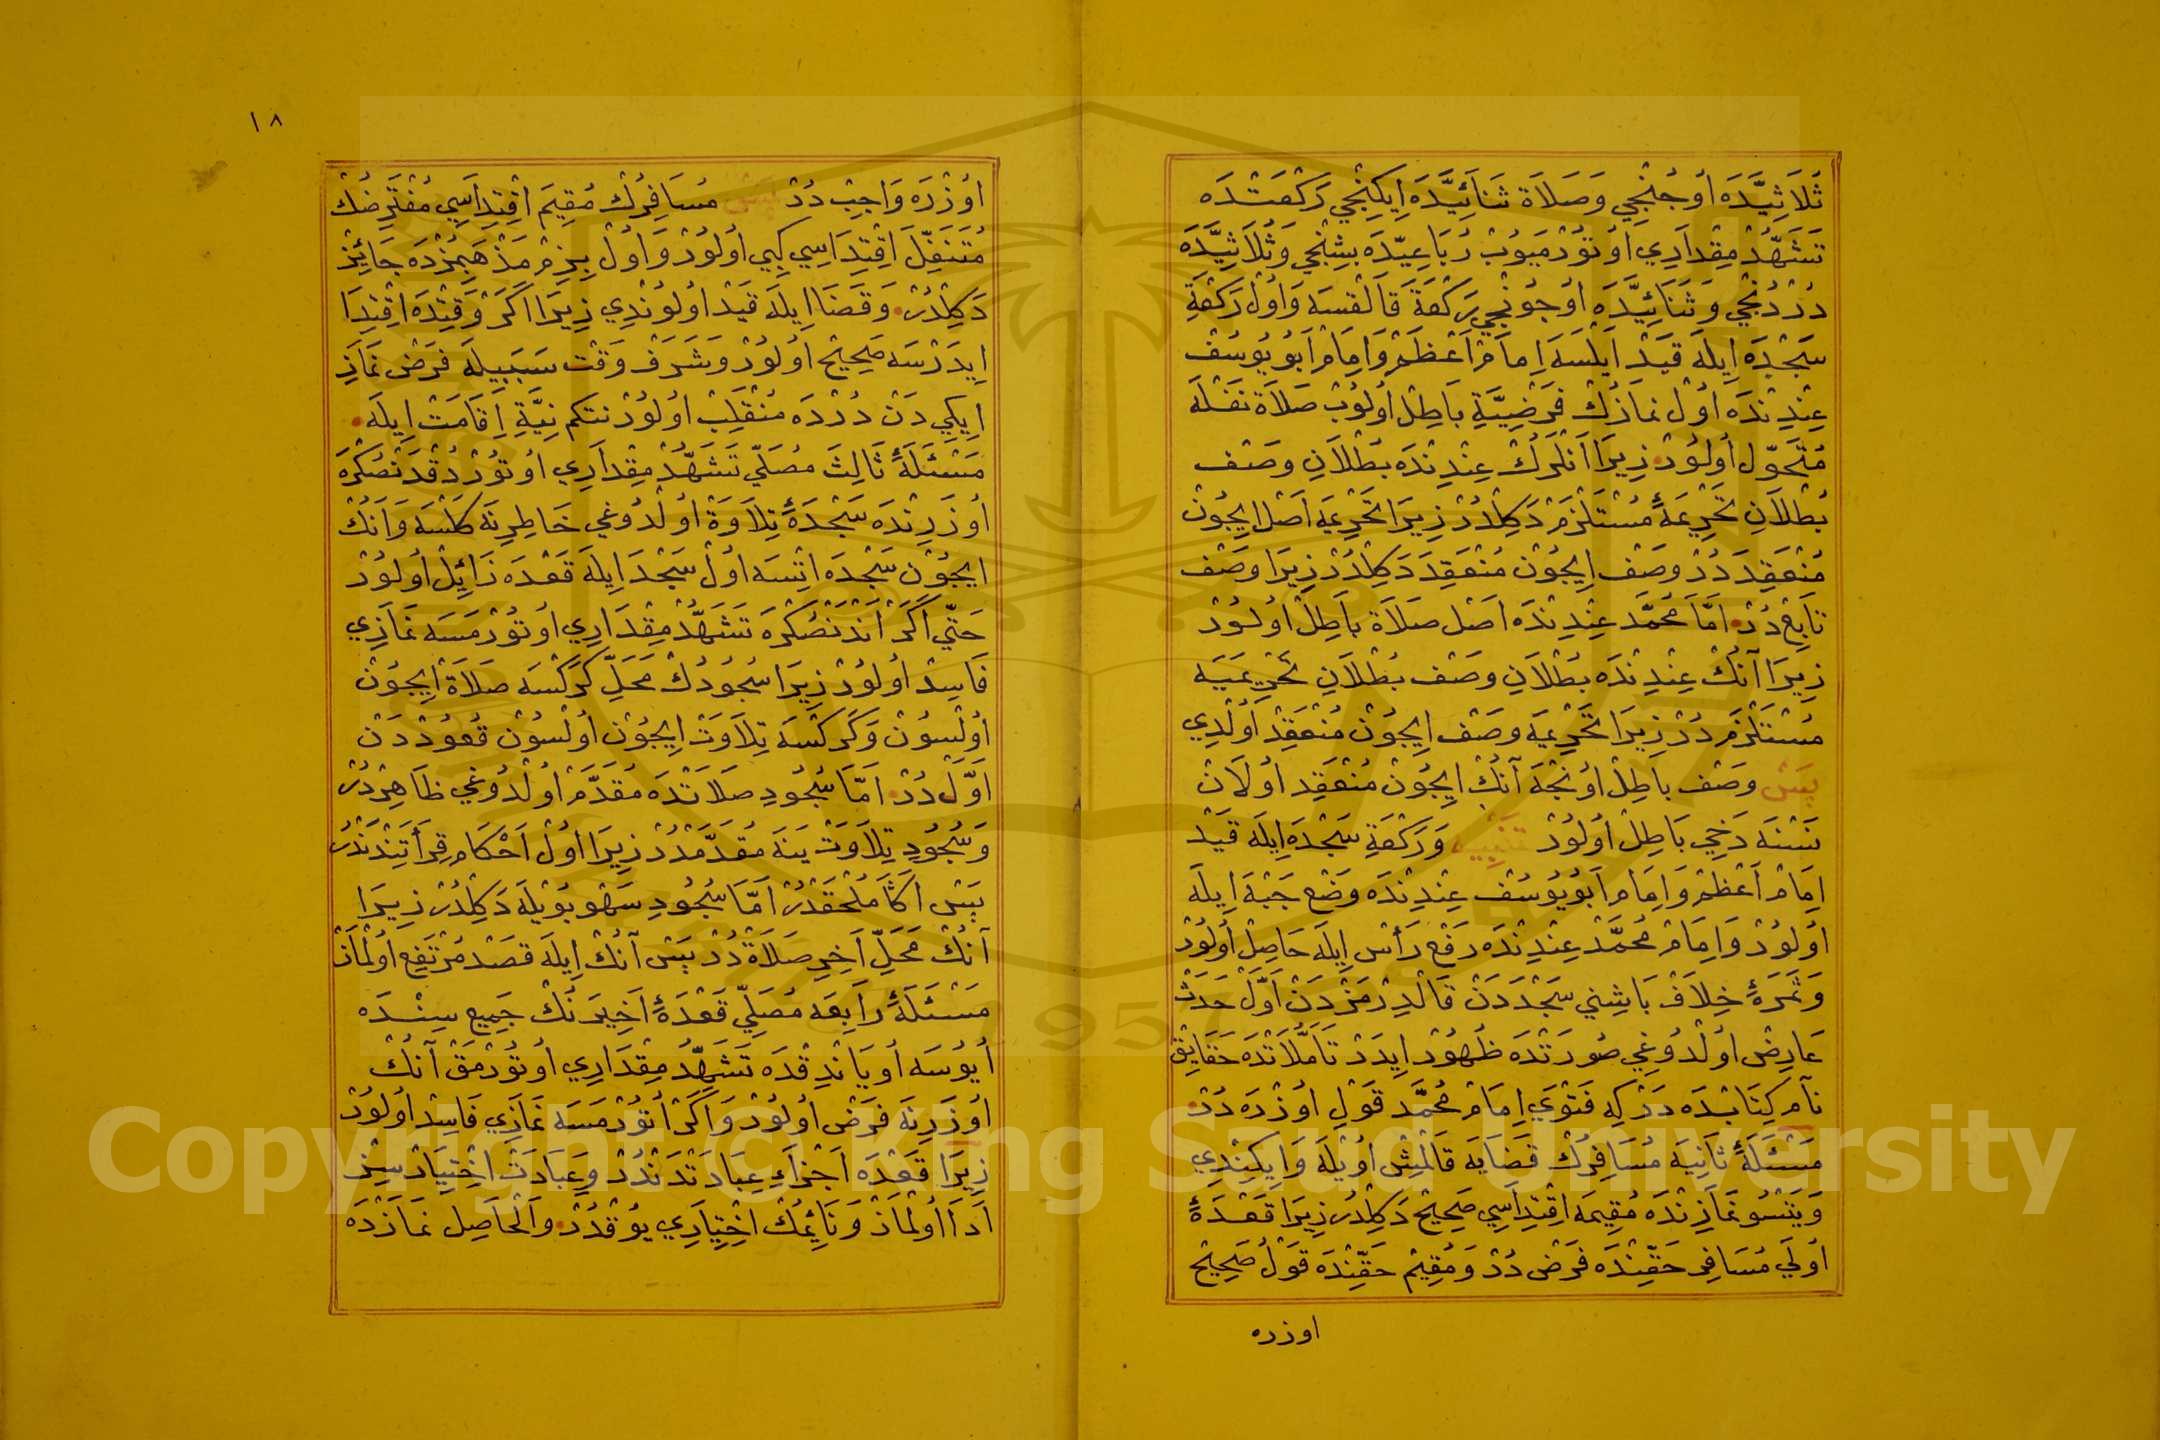 ثَلاَثِيَّدَه اوُجُنْجِي وَصَلاَة ثَنَائِيَّدَه اِيكِنْجِي رَكْعَتْدَه
تَشَهُّدْ مِقْدَارِي اوُتُوْرْمَيُوبْ رُبَاعِيّدَه بِشِنْجِي وَثُلاَثِيَّدَه
دُرْدُنْجِي وَثَنَائِيَّدَه اوُجُونْجِي رَكْعَةَ قَالْقسَه وَاوُلْ رَكْعَةِ
سَجْدَه اِيلَه قَيَدْ اَيْلَسَه اِمَامْ اَعْظَمْ وَاِمَامْ اَبُو يُوسُفْ
عِنْدِنْدَه اوُلْ نمَازِكْ فَرَضِيَّةِ بَاطِلْ اوُلُوبْ صَلاَة نَفْلَه
مُتَحَوّل اوُلُوْر زِيرَا اَنْلَرُكْ عِنْدِنْدَه بُطْلاَنِ وصَف
بُطْلاَنِ تَحْرِيمَةً مُسْتَلْزِمْ دَكِلْدُرْ زِيرَا تَحْرِيمَه اَصْل اِيجُوْنْ
مُنْعَقِدَ دُرْ وصَف اِيجُوْن مُنْعَقِدَ دَكِلْدُرْ زِيرَا وصَف
تَابِع دُرْ اَمَّا مُحَمَّد عِنْدِنْدَه اصْل صَلاَة بَاطِلْ اوُلُورْ
زِيرَا آنكُ عِنْدِنْدَه بُطْلاَنِ وصَف بُطْلاَنِ تَحْرِيمَيَه
مُسْتَلْزَمْ دُرْ زِيرَا تَحْرِيمَه وصَف اِيجُوْن مُنْعَقِدْ اوُلْدِي
پَسْ وصَف بَاطِلْ اوُنْجَه آنكُ اِيجُوْن مُنْعَقِد اوُلاَنْ
نَسْنَه دَخِي بَاطِلْ اوُلُوْرْ تنبيه وَرَكْعَةِ سَجْدَه اِيلَه قَيَدْ
اِمَامْ اَعْظَمْ وَاِمَامْ اَبُو يُوسُف عِنْدِنْدَه وَضْع جَبْهَه اِيلَه
اوُلُوْرْ وَاِمَامْ مُحَمَّدْ عِنْدِنْدَه رَفْع رَأس اِيلَه حَاصِلْ اوُلُوْرْ
وَثَمَرَۀ خِلاَفْ بَاشِنِي سَجْدَدَنْ قَالْدِرْمَزْدَنْ اَوَّلْ حَدَثْ
عَارِض اوُلْدُوغِي صُورَتْدَه ظُهُوْر اِيدَرْ تَأمّلاَتْدَه حَقَايِقْ
نَام كِتَابْدَه دَرْكِه فَتْوَي اِمَامْ مُحَمَّد قَوْلِ اوُزْرَه دُرْ
مَسْئَلَۀ ثَانِيَه مُسَافِرُكْ قَضَايَه قَالْمِش اوُيْلَه وَاِيكِنْدِي
وَيَتْسُو نمَازِنْدَه مُقِيمَه اِقْتِدَاسِي صَحِيحْ دَكِلْدُر زِيرَا قَعْدَۀ
اوُلَي مُسَافِر حَقِّنْدَه فَرَض دُرْ وَمُقِيْم حَقِّنْدَه قَوْل صَحِيح
اوزره
١٨
اوُزْرَه وَاجِبْ دُرْ پَسْ مُسَافِرُكْ مُقِيمَ اقْتِدَاسِي مُفْتَرِضُكْ
مُتَنَفِّلَ اقْتِدَاسِي كِبِي اوُلُوْر وَاوُلْ بِزِمْ مَذْهَبِمُزْدَه جَائِز
دَكِلْدُرْ وَقَضَا اِيلَه قَيَدْ اوُلُونْدِي زِيرَا اَكَرْ وَقِتْدَه اقْتِدَا
اِيدَرْسَه صَحِيحْ اوُلُوْر وَشَرَفْ وَقْت سَبَبِيلَه فَرَض نمَازِ
اِيكِي دَنْ دُرْدَه مُنْقَلِبْ اوُلُوْر نتكم نِيَّةِ اِقَامَتْ اِيلَه
مَسْئَلَۀ ثَالِثَ مُصَلِّي تَشَهُّدْ مِقْدَارِي اوُتُوْرْدُقْدَنْصُكْرَه
اوُزَرِنْدَه سَجْدَۀ تِلاَوَة اوُلْدُوغِي خَاطِرِنَه كَلْسَه وَانكْ
اِيجُوْن سَجْدَه اتْسَه اوُلْ سَجْدَ اِيلَه قَعْدَه زَائِلْ اوُلُوْرْ
حَتَّي اَكَرْ انْدَنْصُكْرَه تَشَهُّدْ مِقْدَارِي اوُتُوْرْمَسَه نمَازِي
فَاسِدْ اوُلُوْر زِيرَا سُجُودُكْ مَحَلِّ كَرَكْسَه صَلاَة اِيجُوْن
اوُلْسُوْنْ وَكَرَكْسَه تِلاَوَتْ اِيجُوْن اوُلْسُوْن قُعُوْدْدَنْ
اَوَّلْ دُرْ امَّا سُجُودِ صَلاَتْدَه مُقَدَّمْ اوُلْدُوغِي ظَاهِرْدُرْ
وَسُجُودِ تِلاَوَتْ يَنَه مُقَدَّمْدُرْ زِيرَا اوُلْ اَحْكَامِ قِرأَتِنْدَنْدُرْ
پَسْ اَكَا مُلْحَقْدُرْ اَمَّا سُجُودِ سَهْو بُويْلَه دَكِلْدُرْ زِيرَا
آنكُ مَحَلِّ اَخِرِ صَلاَة دُرْ پَسْ آنكُ اِيلَه قصَدْ مُرْتَفِع اوُلْمَازْ
مَسْئَلَۀ رَابِعَه مُصَلِّي قَعْدَۀ اَخِيرَنكْ جَمِيع سِنْدَه
اُيُوسَه اُويَانْدِقْدَه تَشَهّدْ مِقْدَارِي اوُتُوْرْمَقْ آنكُ
اوُزَرِنَه فَرَض اوُلُوْر وَاكَرْ اُتُوْرْمَسَه نمَازِي فَاسِدْ اوُلُوْرْ
زِيرَا قَعْدَه اَجْزَاءِ عِبَادَتْدَنْدُرْ وَعِبَادَتْ اِخْتِيَارْسِزْ
اَدَا اوُلْمَازْ وَنَائِمُكْ اخْتِيَارِي يُوْقْدُرْ وَالْحَاصِل نمَازْدَه
Copyright © King Saud University
1957